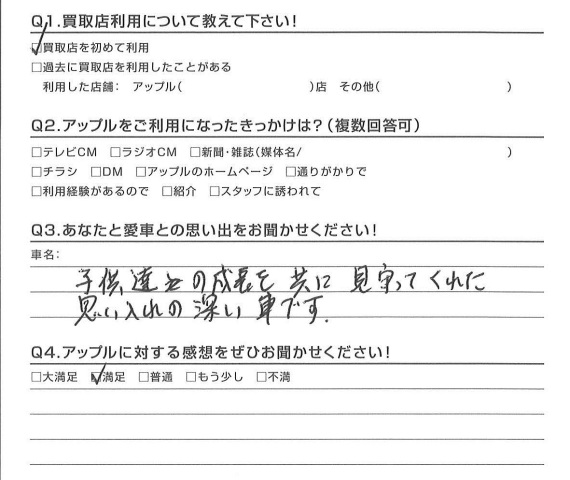 Q1.買取店利用について教えて下さい!
☑買取店を初めて利用
□過去に買取店を利用したことがある
利用した店舗: アップル( )店 その他( )
Q2.アップルをご利用になったきっかけは?(複数回答可)
□テレビCM □ラジオCM □新聞・雑誌(媒体名/ )
□チラシ □DM □アップルのホームページ □通りがかりで
□利用経験があるので □紹介 □スタッフに誘われて
Q3.あなたと愛車との思い出をお聞かせください!
車名:
子供達の成長を共に見守ってくれた
思い入れの深い車です.
Q4.アップルに対する感想をぜひお聞かせください!
□大満足 ☑満足 □普通 □もう少し □不満